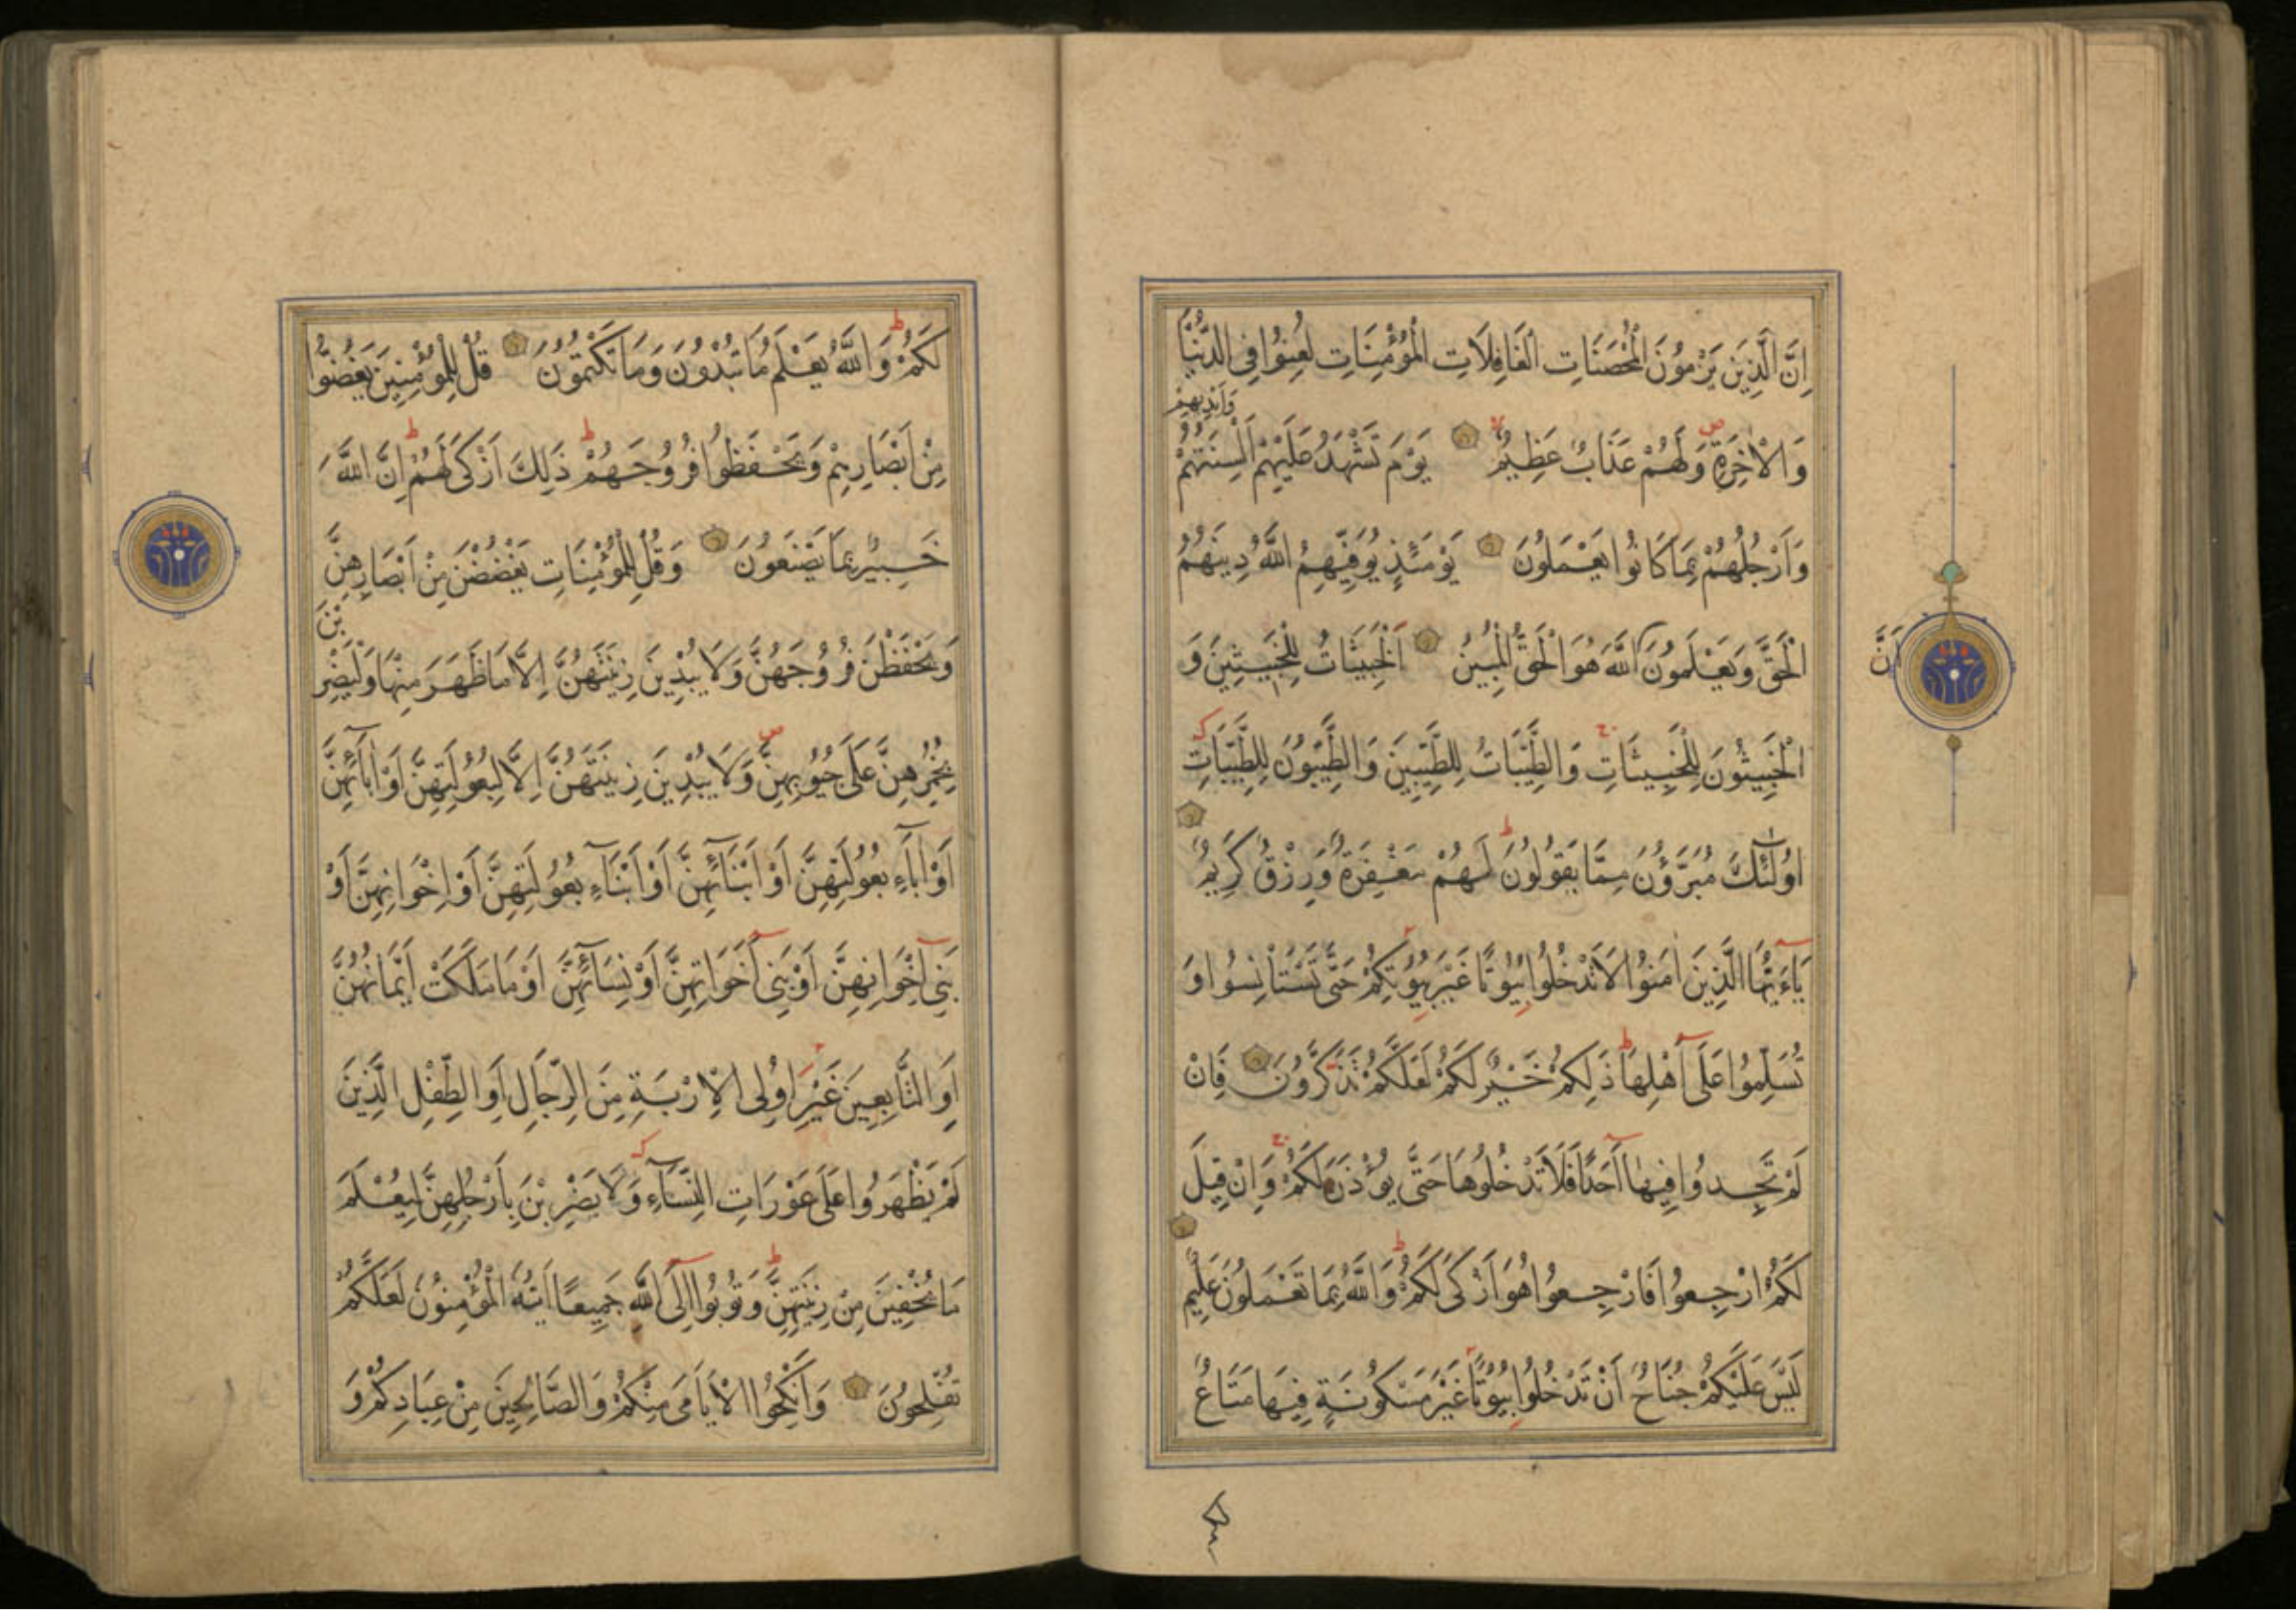 اِنَّ الَّذِينَ يَرْمُونَ الْمُحْصَنَاتِ الْغَافِلَاتِ الْمُؤْمِنَاتِ لُعِنُوا فِى الدُّنْيَا
وَاَيْدِيهِمْ
وَالْاٰخِرَةِ ص وَلَهُمْ عَذَابٌ عَظِيمٌ لا يَوْمَ تَشْهَدُ عَلَيْهِمْ اَلْسِنَتُهُمْ
وَاَرْجُلُهُمْ بِمَا كَانُوا يَعْمَلُونَ يَوْمَئِذٍ يُوَفِّيهِمُ اللّٰهُ دِينَهُمُ
اَنَّ
الْحَقَّ وَيَعْلَمُونَ اللّٰهَ هُوَ الْحَقُّ الْمُبِينُ اَلْخَبِيثَاتُ لِلْخَبِيثِينَ وَ
الْخَبِيثُونَ لِلْخَبِيثَاتِ ج وَالطَّيِّبَاتُ لِلطَّيِّبِينَ وَالطَّيِّبُونَ لِلطَّيِّبَاتِ
اُولٰٓئِكَ مُبَرَّؤُنَ مِمَّا يَقُولُونَ ط لَهُمْ مَغْفِرَةٌ وَرِزْقٌ كَرِيمٌ
يَاءَيُّهَا الَّذِينَ اٰمَنُوا لَا تَدْخُلُوا بُيُوتًا غَيْرَ بُيُوتِكُمْ حَتّٰى تَسْتَاْنِسُوا وَ
تُسَلِّمُوا عَلٰٓى اَهْلِهَا ط ذٰلِكُمْ خَيْرٌ لَكُمْ لَعَلَّكُمْ تَذَكَّرُونَ فَاِنْ
لَمْ تَجِدُوا فِيهَا اَحَدًا فَلَا تَدْخُلُوهَا حَتّٰى يُؤْذَنَ لَكُمْ ج وَاِنْ قِيلَ
لَكُمُ ارْجِعُوا فَارْجِعُوا هُوَ اَزْكٰى لَكُمْ ط وَاللّٰهُ بِمَا تَعْمَلُونَ عَلِيمٌ
لَيْسَ عَلَيْكُمْ جُنَاحٌ اَنْ تَدْخُلُوا بُيُوتًا غَيْرَ مَسْكُونَةٍ فِيهَا مَتَاعٌ
لَكُمْ ط وَاللّٰهُ يَعْلَمُ مَا تُبْدُونَ وَمَا تَكْتُمُونَ قُلْ لِلْمُؤْمِنِينَ يَغُضُّوا
مِنْ اَبْصَارِهِمْ وَيَحْفَظُوا فُرُوجَهُمْ ط ذٰلِكَ اَزْكٰى لَهُمْ ط اِنَّ اللّٰهَ
خَبِيرٌ بِمَا يَصْنَعُونَ وَقُلْ لِلْمُؤْمِنَاتِ يَغْضُضْنَ مِنْ اَبْصَارِهِنَّ
بْنَ
وَيَحْفَظْنَ فُرُوجَهُنَّ وَلَا يُبْدِينَ زِينَتَهُنَّ اِلَّا مَا ظَهَرَ مِنْهَا وَلْيَضْرِ
بِخُمُرِهِنَّ عَلٰى جُيُوبِهِنَّ ص وَلَا يُبْدِينَ زِينَتَهُنَّ اِلَّا لِبُعُولَتِهِنَّ اَوْ اٰبَآئِهِنَّ
اَوْ اٰبَآءِ بُعُولَتِهِنَّ اَوْ اَبْنَآئِهِنَّ اَوْ اَبْنَآءِ بُعُولَتِهِنَّ اَوْ اِخْوَانِهِنَّ اَوْ
بَنِىٓ اِخْوَانِهِنَّ اَوْ بَنِىٓ اَخَوَاتِهِنَّ اَوْ نِسَآئِهِنَّ اَوْ مَا مَلَكَتْ اَيْمَانُهُنَّ
اَوِ التَّابِعِينَ غَيْرِ اُولِى الْاِرْبَةِ مِنَ الرِّجَالِ اَوِ الطِّفْلِ الَّذِينَ
لَمْ يَظْهَرُوا عَلٰى عَوْرَاتِ النِّسَآءِ وَلَا يَضْرِبْنَ بِاَرْجُلِهِنَّ لِيُعْلَمَ
مَا يُخْفِينَ مِنْ زِينَتِهِنَّ ط وَتُوبُوا اِلَى اللّٰهِ جَمِيعًا اَيُّهَ الْمُؤْمِنُونَ لَعَلَّكُمْ
تُفْلِحُونَ وَاَنْكِحُوا الْاَيَامٰى مِنْكُمْ وَالصَّالِحِينَ مِنْ عِبَادِكُمْ وَ